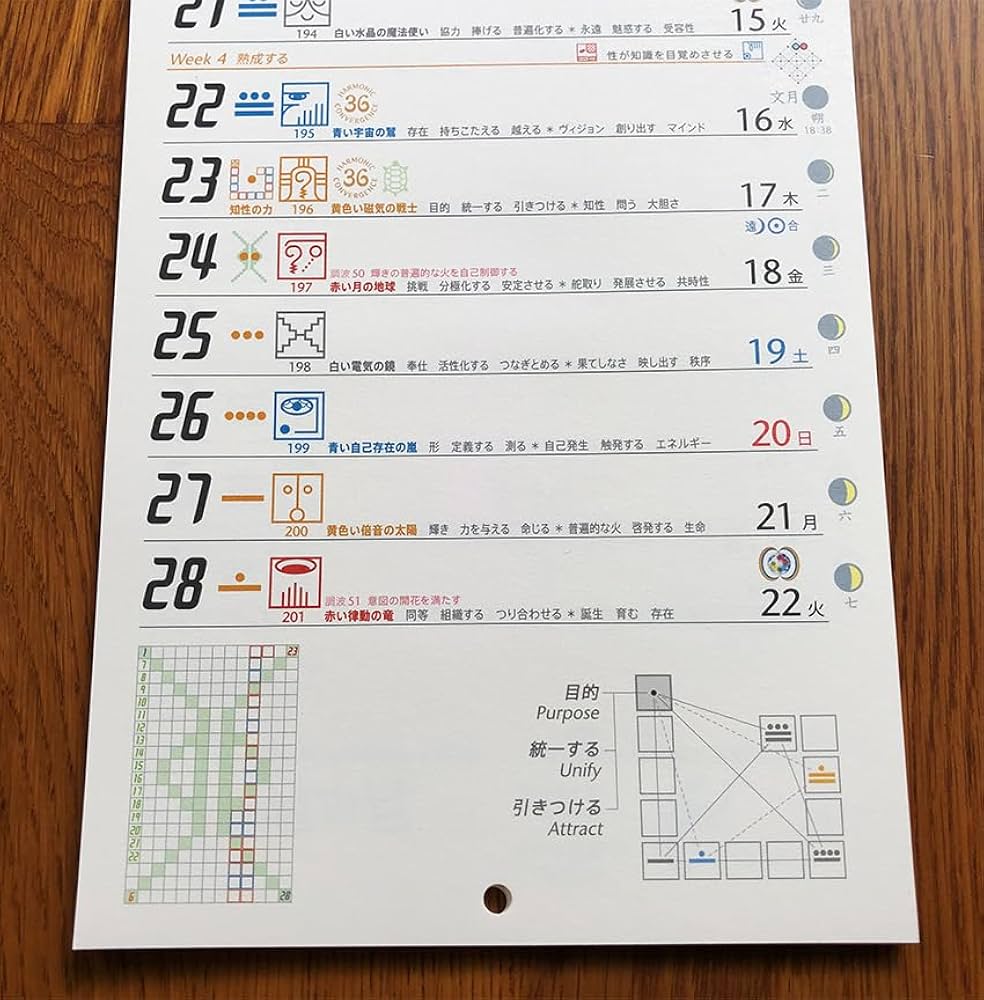 21 194 白い水晶の魔法使い 協力 捧げる 普遍化する * 永遠 魅惑する 受容性 15 火 廿九
Week 4 熟成する 性が知識を目覚めさせる
22 HARMONIC 36 CONVERGENCE 文月
195 青い宇宙の鷲 存在 持ちこたえる 越える * ヴィジョン 創り出す マインド 16 水 朔 18:38
23 HARMONIC 36 CONVERGENCE
知性の力 196 黄色い磁気の戦士 目的 統一する 引きつける * 知性 問う 大胆さ 17 木 二
24 遠 合
調波 50 輝きの普遍的な火を自己制御する
197 赤い月の地球 挑戦 分極化する 安定させる * 舵取り 発展させる 共時性 18 金 三
25 198 白い電気の鏡 奉仕 活性化する つなぎとめる * 果てしなさ 映し出す 秩序 19 土 四
26 199 青い自己存在の嵐 形 定義する 測る * 自己発生 触発する エネルギー 20 日 五
27 200 黄色い倍音の太陽 輝き 力を与える 命じる * 普遍的な火 啓発する 生命 21 月 六
28 調波 51 意図の開花を満たす
201 赤い律動の竜 同等 組織する つり合わせる * 誕生 育む 存在 22 火 七
1 23
7
8
9
10
11
12
13
14
15
16
17
18
19
20
21
22
6 28
目的
Purpose
統一する
Unify
引きつける
Attract